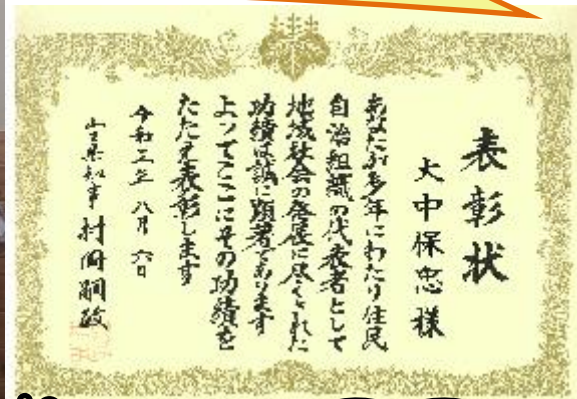 表彰状
大中保忠様
あなたが多年にわたり住民
自治組織の代表者として
地域社会の発展に尽くされた
功績は誠に顕著であります
よってここにその功績を
たたえ表彰します
令和三年八月六日
山口県知事 村岡嗣政